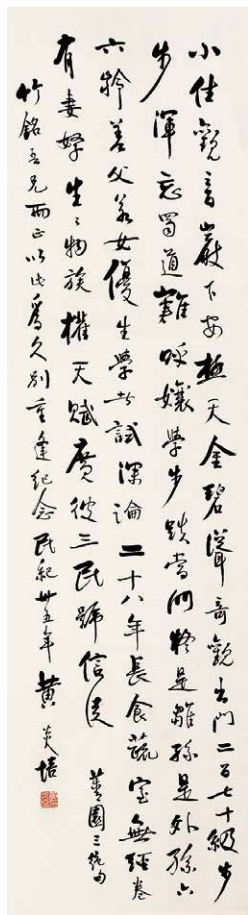 小住觀音巖下安極天金碧聳奇觀出門二百七十級步
步渾忘蜀道難呼孃學步跌當門疑是雛孫是外孫六
六齡差父若女優生學者試深論二十八年長食蔬室無經卷
有妻孥生々物族權天賦廣彼三民號信徒 菁園三絕句
竹銘吾兄兩正以此為久別重逢紀念民紀卅五年黃炎培